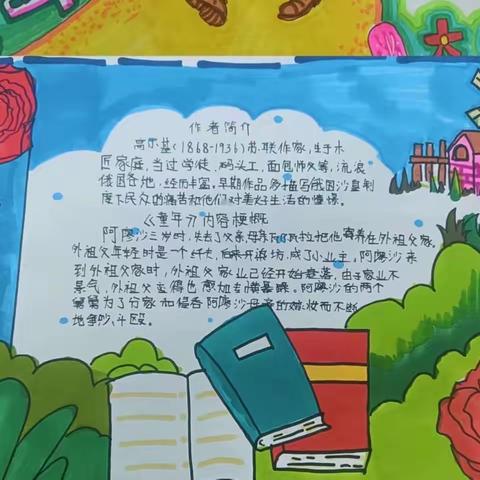 作者简介
高尔基(1868-1936)苏联作家,生于木
匠家庭,当过学徒、码头工,面包师父等,流浪
俄国各地,经历丰富,早期作品多描写俄国沙皇制
度下民众的痛苦和他们对美好生活的憧憬。
《童年》内容梗概
阿廖沙三岁时,失去了父亲,母亲 把他寄养在外祖父家,
外祖父年轻时是一个纤夫,后来开染坊,成了小业主,阿廖沙来
到外祖父家时,外祖父家业已经开始衰落,由于家业不
景气,外祖父变得也愈加专横暴躁。阿廖沙的两个
舅舅为了分家和侵吞阿廖沙母亲的嫁妆而不断
地争吵、斗殴。